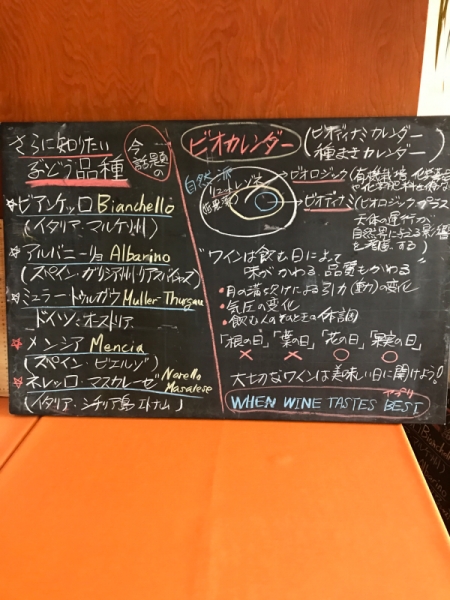 さらに知りたい
今話題の
ぶどう品種
☆ビアンケッロ Bianchello
(イタリア・マルケ州)
☆アルバニーリョ Albarino
(スペイン・ガリシア州リアスバイシャス)
☆ミュラートゥルガウ Muller-Thurgau
ドイツ・オーストリア
☆メンシア Mencia
(スペイン・ビエルゾ)
☆ネレッロ・マスカレーゼ Nerello Mascalese
(イタリア・シチリア島エトナ山)
ビオカレンダー
(ビオディナミカレンダー
種まきカレンダー)
自然派
ビオロジック
ビオディナミ
(ビオロジックプラス
天体の運行が
自然界に与える影響
を考慮する)
"ワインは飲む日によって
味がかわる、品質もかわる"
・月の満ち欠けによる引力(動)の変化
・気圧の変化
・飲む人のそのときの体調
「根の日」「葉の日」「花の日」「実の日」
× × ○ ○
大切なワインは美味しい日に開けよう!
アプリ
WHEN WINE TASTES BEST